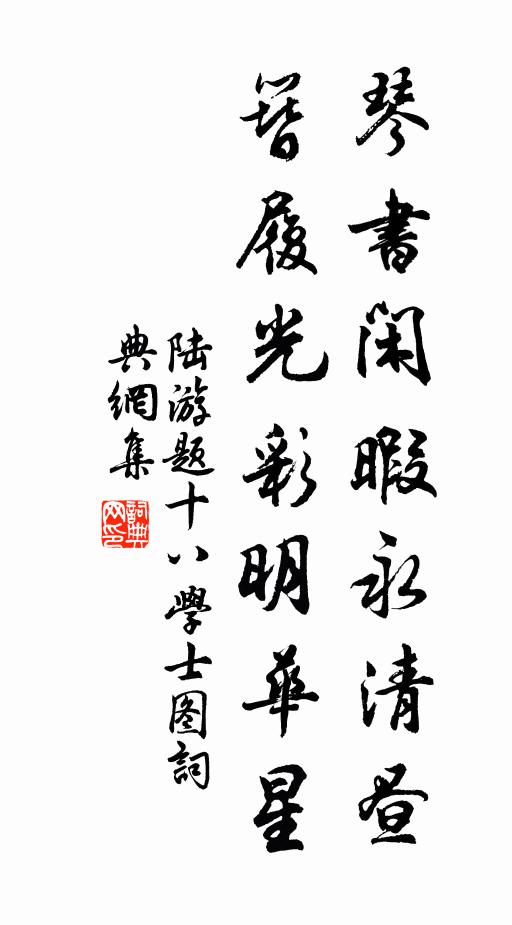 琴書閑暇永清晝
簪履光彩明華星
陆游题十八學士图詞
典網集
詞典网印